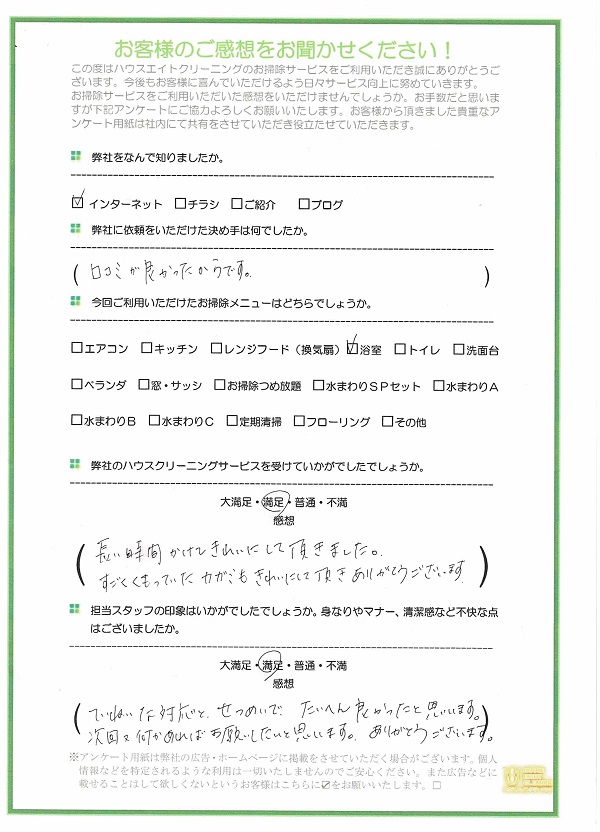 お客様のご感想をお聞かせください！
この度はハウスエイトクリーニングのお掃除サービスをご利用いただき誠にありがとうご
ざいます。今後もお客様に喜んでいただけるよう日々サービス向上に努めていきます。
お掃除サービスをご利用いただいた感想をいただけませんでしょうか。お手数だと思いま
すが下記アンケートにご協力よろしくお願いいたします。お客様から頂きました貴重なア
ンケート用紙は社内にて共有をさせていただき役立たせていただきます。
弊社をなんで知りましたか。
☑インターネット □チラシ □ご紹介 □ブログ
弊社に依頼をいただけた決め手は何でしたか。
(口コミが良かったからです。)
今回ご利用いただけたお掃除メニューはどちらでしょうか。
□エアコン □キッチン □レンジフード（換気扇）☑浴室 □トイレ □洗面台
□ベランダ □窓・サッシ □お掃除つめ放題 □水まわりＳＰセット □水まわりＡ
□水まわりＢ □水まわりＣ □定期清掃 □フローリング □その他
弊社のハウスクリーニングサービスを受けていかがでしたでしょうか。
大満足・満足・普通・不満
感想
(長い時間かけてきれいにして頂きました。
すごくくもっていたカガミもきれいにして頂きありがとうございます)
担当スタッフの印象はいかがでしたでしょうか。身なりやマナー、清潔感など不快な点
はございましたか。
大満足・満足・普通・不満
感想
(ていねいな対応と、せつめいで たいへん良かったと思いいます。
次回又何かあればお願いしたいと思います。ありがとうございます。)
※アンケート用紙は弊社の広告・ホームページに掲載をさせていただく場合がございます。個人
情報などを特定されるような利用は一切いたしませんのでご安心ください。また広告などに
載せることはして欲しくないというお客様はこちらに☑をお願いいたします。□